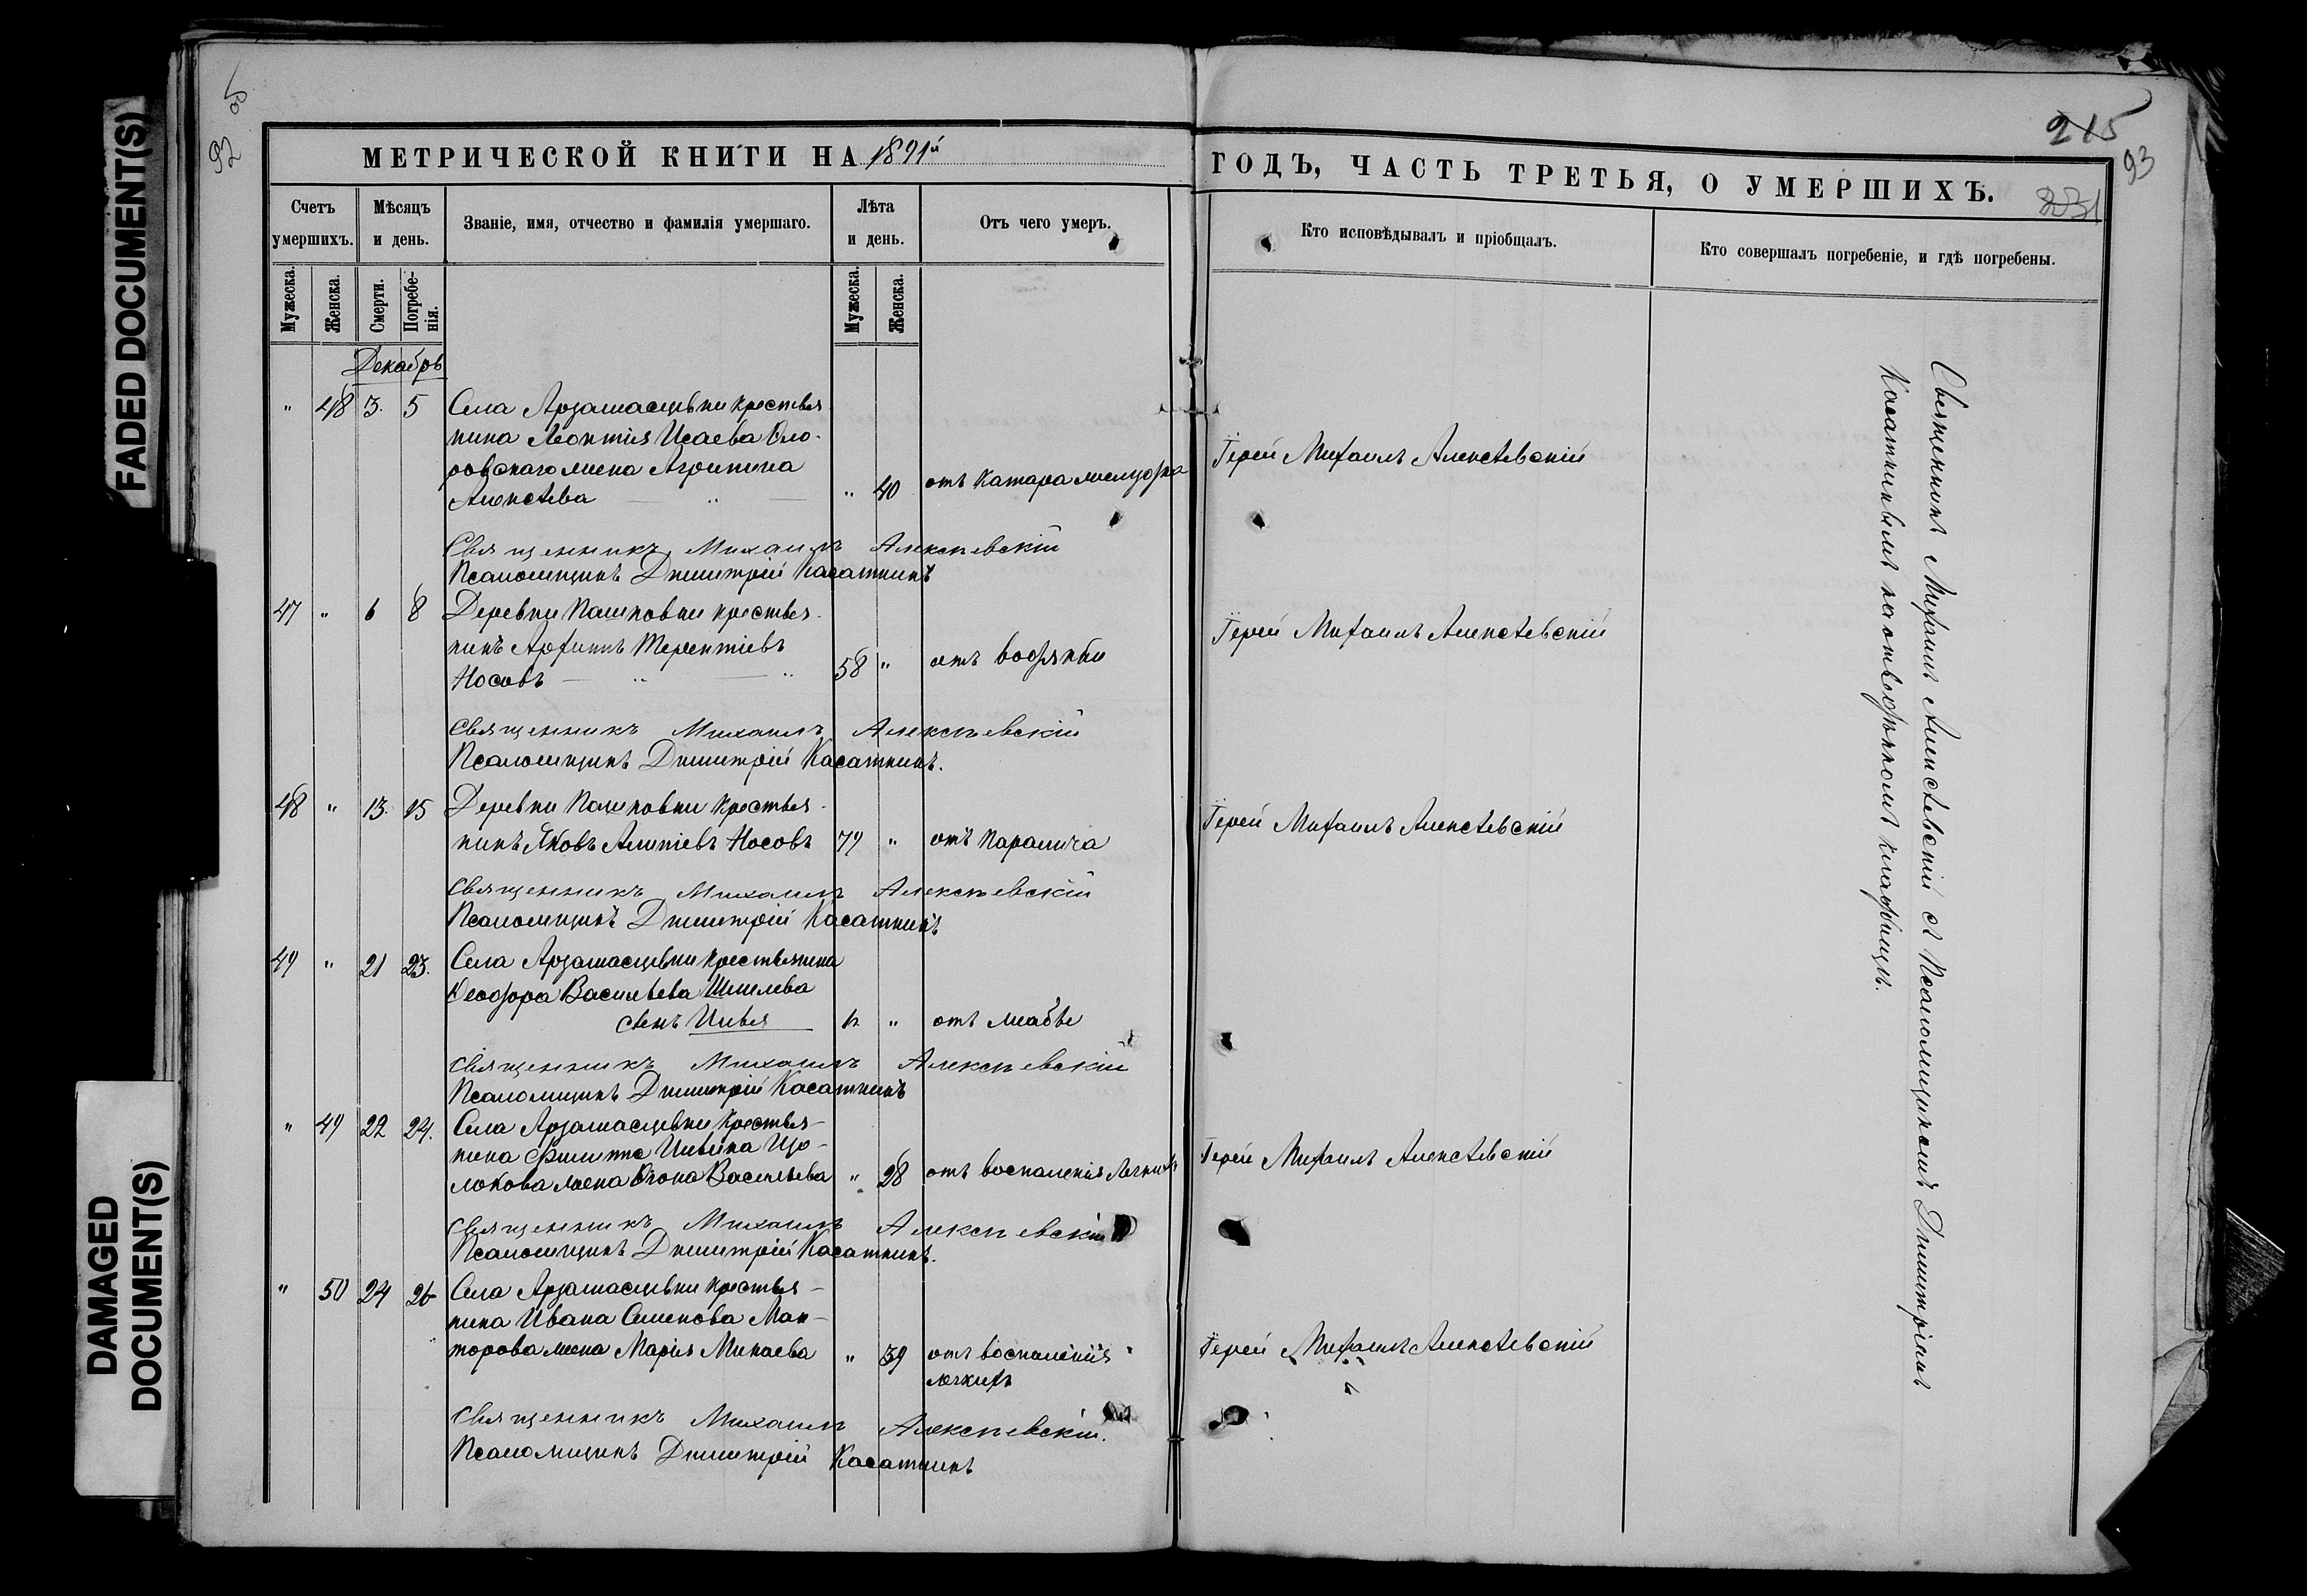 FADED DOCUMENT(S)
DAMAGED
DOCUMENT(S)
92
МЕТРИЧЕСКОЙ КНИГИ НА 1891й
Счетъ умершихъ.
Мѣсяцъ и день.
Званіе, имя, отчество и фамилія умершаго.
Лѣта и день.
Отъ чего умеръ.
Мужеска.
Женска.
Смерти.
Погребе-
нія.
Мужеска.
Женска.
Декабрь
" 48 3. 5 Села Арзамасцевки крестья
нина Леонтія Исаева
жена Агрипина
Алексѣева " 40 отъ катара желудка
Священникъ Михаилъ Алексѣевскій
Псаломщикъ Димитрій Касаткинъ
47 " 6 8 Деревни Пашковки крестья-
нинъ Архиппъ Терентіевъ
Носовъ 58 " отъ водянки
Священникъ Михаилъ Алексѣевскій
Псаломщикъ Димитрій Касаткинъ.
48 " 13. 15 Деревни Пашковки крестья-
нинъ Яковъ Алипіевъ Носовъ 79 " отъ паралича
Священникъ Михаилъ Алексѣевскій
Псаломщикъ Димитрій Касаткинъ
49 " 21 23. Села Арзамасцевки крестьянина
Ѳеодора Васильева Шмелева
сынъ Илья " отъ слабѣе
Священникъ Михаилъ Алексѣевскій
Псаломщикъ Димитрій Касаткинъ
" 49 22 24. Села Арзамасцевки крестья-
нина Филиппа Ильина Що-
локова жена Васильева " 28 отъ воспаленія легкихъ
Священникъ Михаилъ Алексѣевскій
Псаломщикъ Димитрій Касаткинъ.
" 50 24 26 Села Арзамасцевки крестья-
нина Ивана Семенова Кан-
торова жена Марія Минаева " 39 отъ воспаленія
легкихъ
Священникъ Михаилъ Алексѣевскій.
Псаломщикъ Димитрій Касаткинъ
215
93
231
ГОДЪ, ЧАСТЬ ТРЕТЬЯ, О УМЕРШИХЪ.
Кто исповѣдывалъ и пріобщалъ.
Кто совершалъ погребеніе, и гдѣ погребены.
Іерей Михаилъ Алексѣевскій
Іерей Михаилъ Алексѣевскій
Іерей Михаилъ Алексѣевскій
Іерей Михаилъ Алексѣевскій
Іерей Михаилъ Алексѣевскій
Священникъ Михаилъ Алексѣевскій съ Псаломщикомъ Димитріемъ
Касаткинымъ на отведенномъ кладбищѣ.